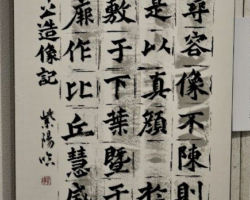 尋容像不陳則
是以真顏於
敷于下葉暨于
厥作比丘慧成
公造像記
紫陽